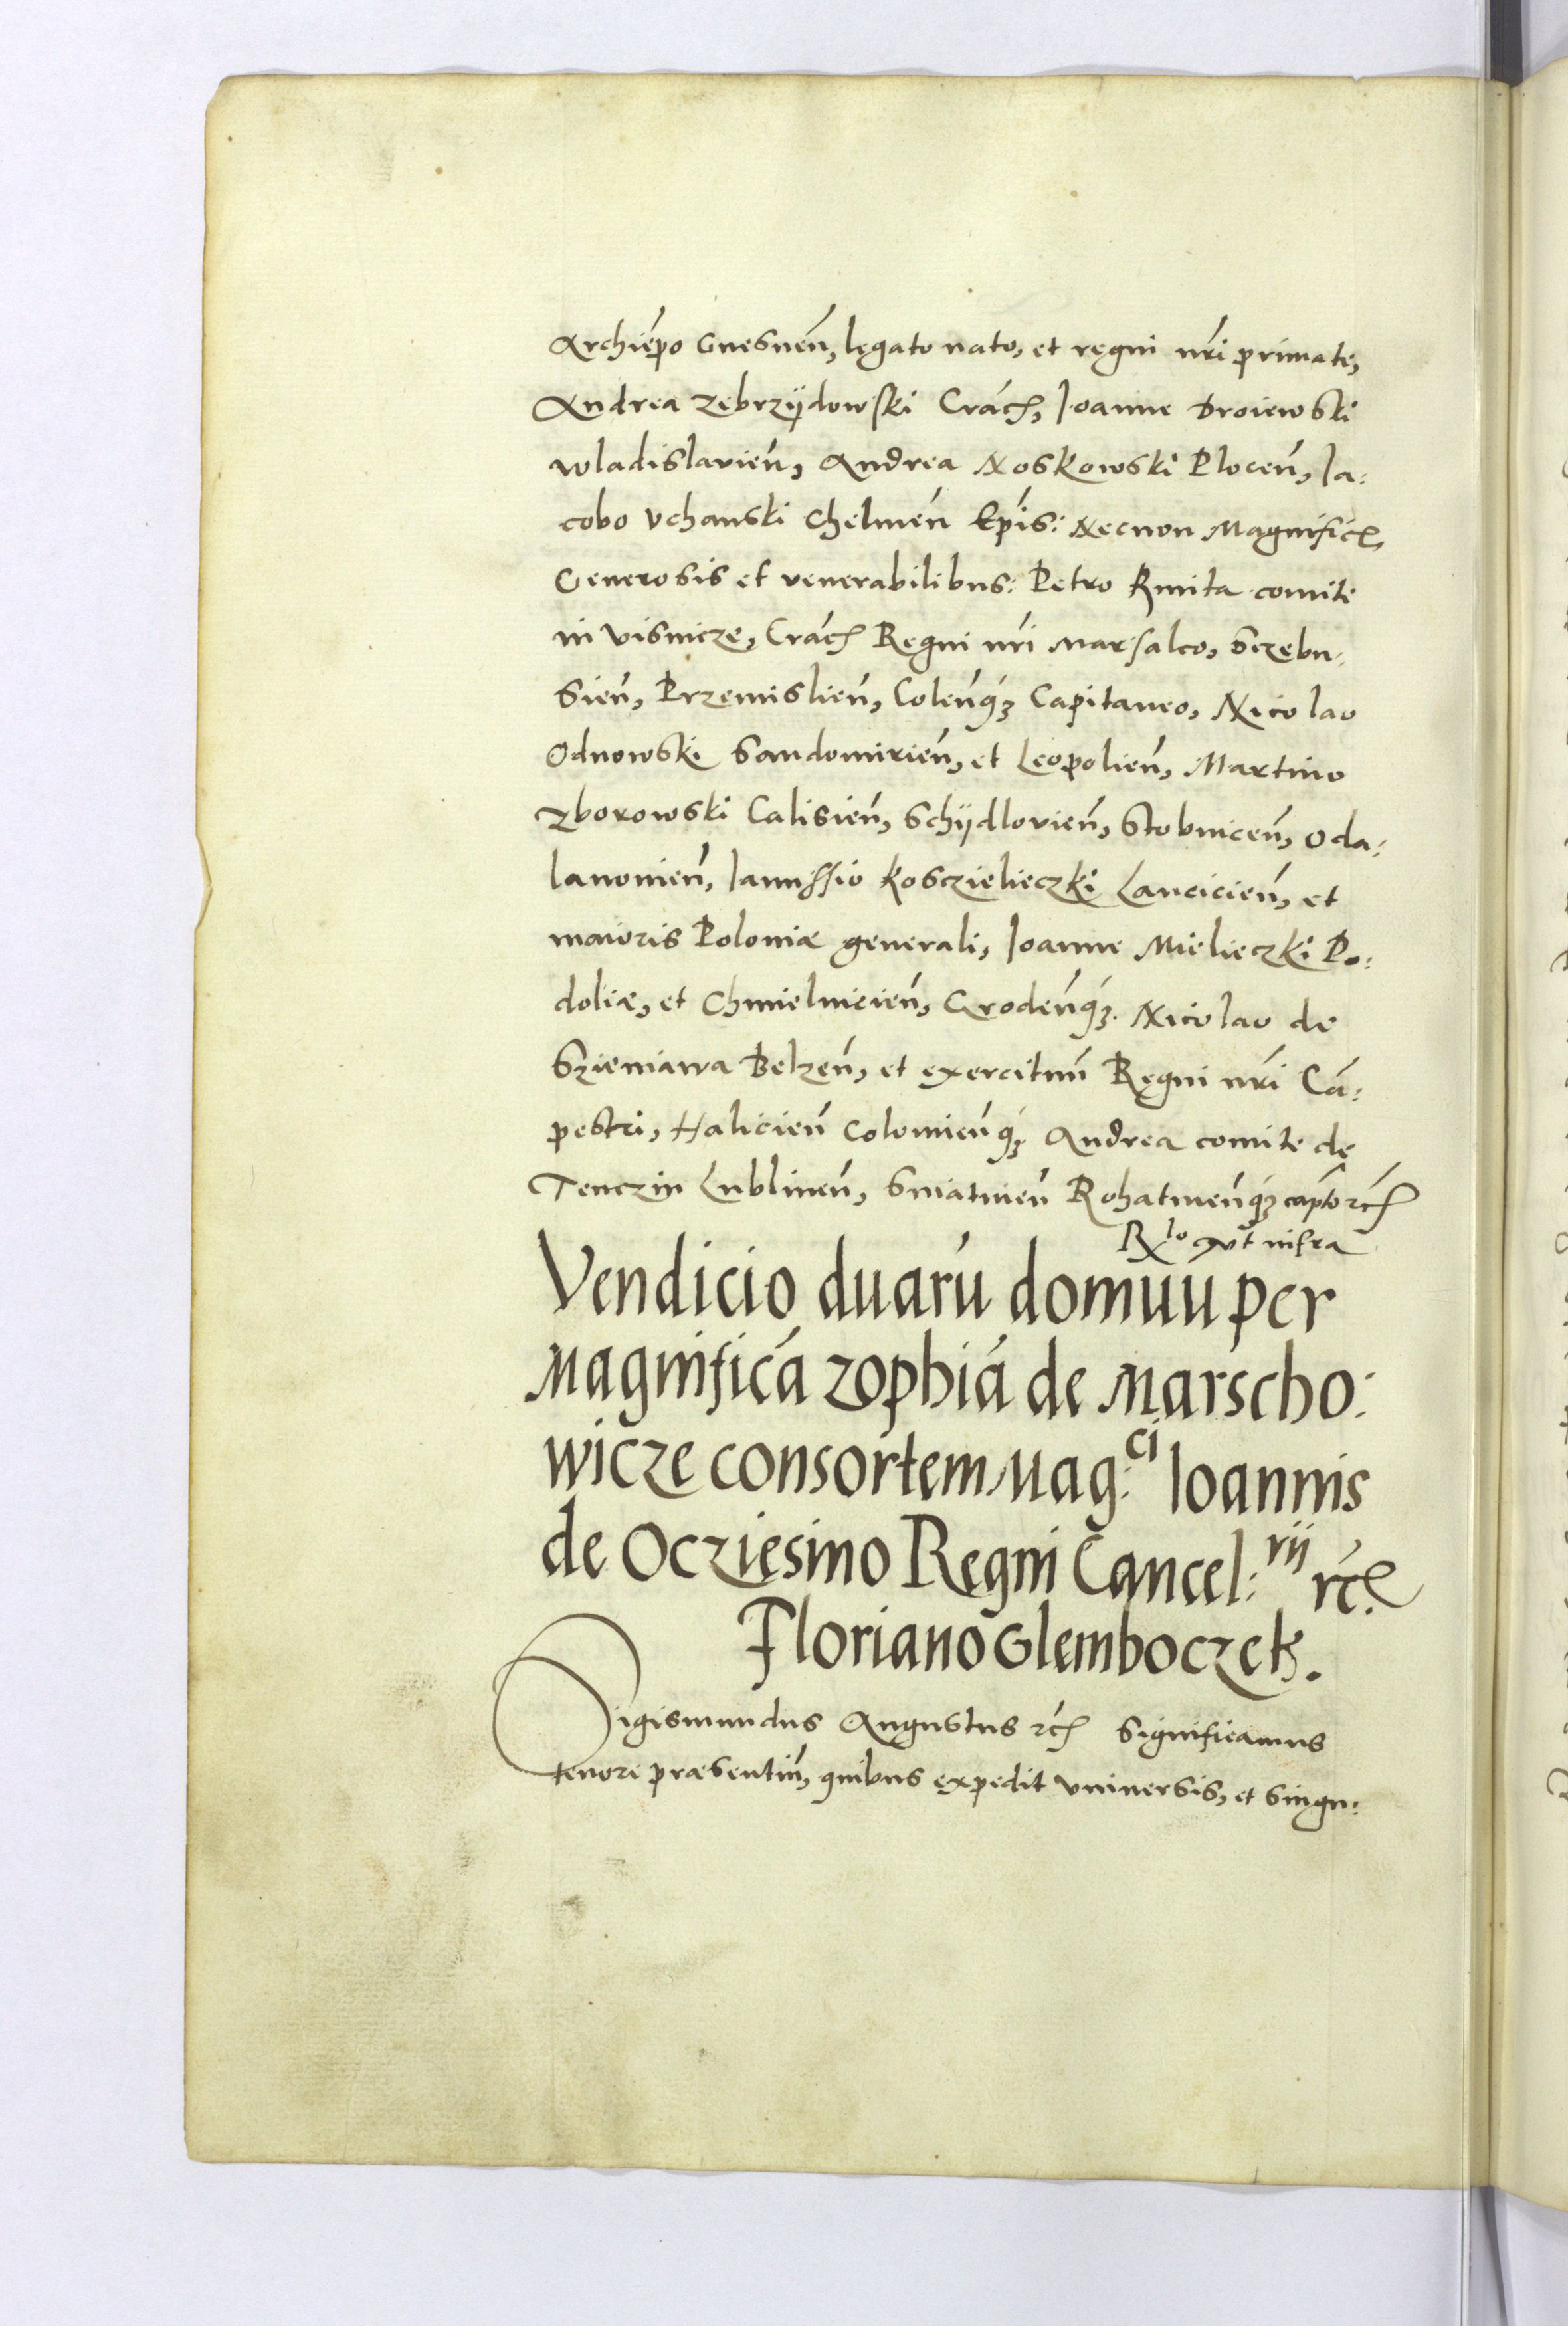 Archiepo Gnesnen̄, legato nato, et regni nr̄i primate,
Andrea Zebrzÿdowski Crac̄, Ioanne Droiewski
Wladislavien̄, Andrea Noskowski Plocen̄, Ia:
cobo Vchanski Chelmen̄ Ep̄is: Necnon Magnific̄,
Generosis et venerabilibus: Petro Kmita comite
in Visnicze, Crac̄ Regni nr̄i Marsalco, Sczebu,
sien̄, Przemislien̄, Colen̄q₃ Capitaneo, Nicolao
Odnowski Sandomirien̄, et Leopolien̄, Martino
Zborowski Calisien̄, Schÿdlovien̄, Stobnicen̄, Oda:
lanonien̄, Ianussio Kosczielieczki Lancicien̄, et
maioris Poloniæ generali, Ioanne Mielieczki Po:
doliæ, et Chmielnicien̄, Grodēnq₃. Nicolao de
Szieniawa Belzen̄, et exercituū Regni nr̄i Cā:
pestri, Halicien̄ Colomien̄q₃ Andrea comite de
Tenczin Lublinen̄, Sniatinen̄ Rohatinen̄q₃ capto rc̄
R^lo ut infra
Vendicio duarū domuū per
Magnificā Zophiā de Marscho:
wicze consortem Mag:^ci Ioannis
de Ocziesino Regni Cancel:^rij rc̄
Floriano Glemboczek.
Sigismundus Augustus rc̄ Significamus
tenore præsentiū, quibus expedit universis, et singu: